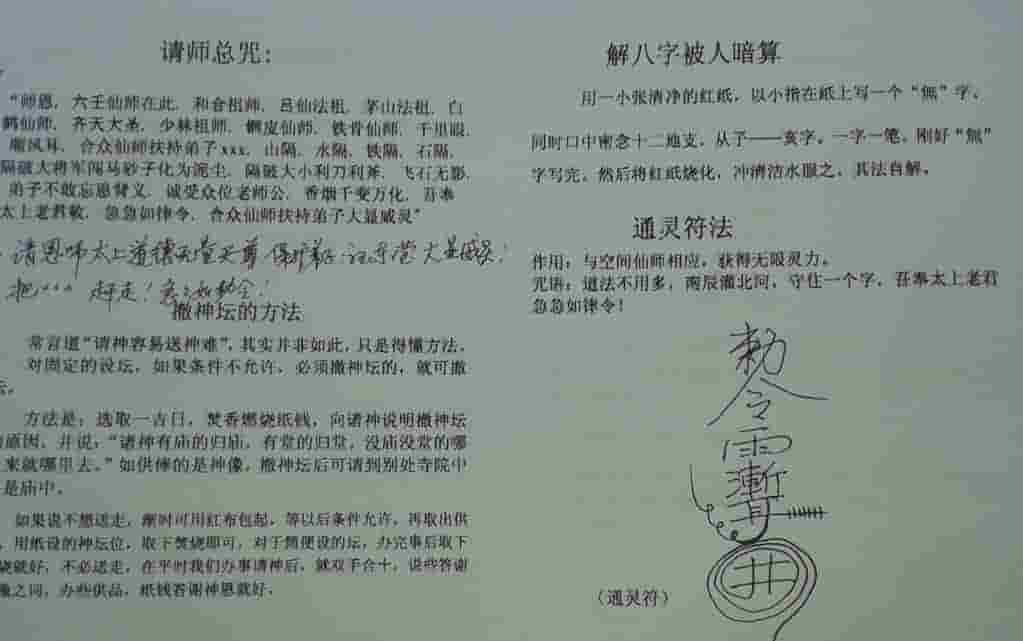 请师总咒：
“师恩，六壬仙师在此，和合祖师，吕仙法祖，茅山法祖，白
鹤仙师，齐天大圣，少林祖师，铜皮仙师，铁骨仙师，千里眼，
顺风耳，合众仙师扶持弟子xxx，山隔，水隔，铁隔，石隔，
隔破大将军闯马砂子化为泥尘，隔破大小利刀利斧，飞石无影，
弟子不敢忘恩背义，诚受众位老师公，香烟千变万化，吾奉
太上老君敕，急急如律令，合众仙师扶持弟子大显威灵”
请恩师太上道德天尊保护弟子 大显威灵！
把××× 赶走！急急如勅令！
撤神坛的方法
常言道“请神容易送神难”，其实并非如此，只是得懂方法。
对固定的设坛，如果条件不允许，必须撤神坛的，就可撤
坛。
方法是：选取一吉日，焚香燃烧纸钱，向诸神说明撤神坛
的原因，并说：“诸神有庙的归庙，有堂的归堂，没庙没堂的哪
来就哪里去。”如供俸的是神像，撤神坛后可请到别处寺院中
是庙中。
如果说不想送走，暂时可用红布包起，等以后条件允许，再取出供
，用纸设的神坛位，取下焚烧即可，对于简便设的坛，办完事后取下
烧就好，不必送走，在平时我们办事请神后，就双手合十，说些答谢
之词，办些供品，纸钱答谢神恩就好。
解八字被人暗算
用一小张清净的红纸，以小指在紙上写一个“無”字，
同时口中密念十二地支，从子——亥字。一字一笔，刚好“無”
字写完，然后将红紙烧化，冲清洁水服之，其法自解。
通灵符法
作用：与空间仙师相应，获得无限灵力。
咒语：道法不用多，南辰灌北河，守住一个字，吾奉太上老君
急急如律令！
勅
令
雨
漸
耳
井
（通灵符）